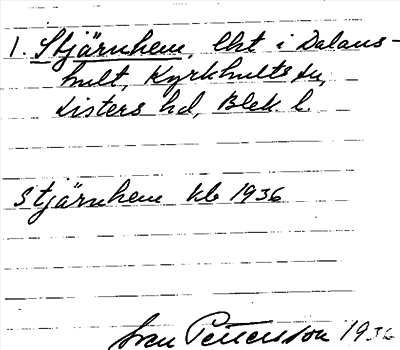 1. Stjärnhem, lht i Dalans-
hult, Kyrkhults sn,
Listers hd, Blek. l.
Stjärnhem kb 1936
Sven Pettersson 1936